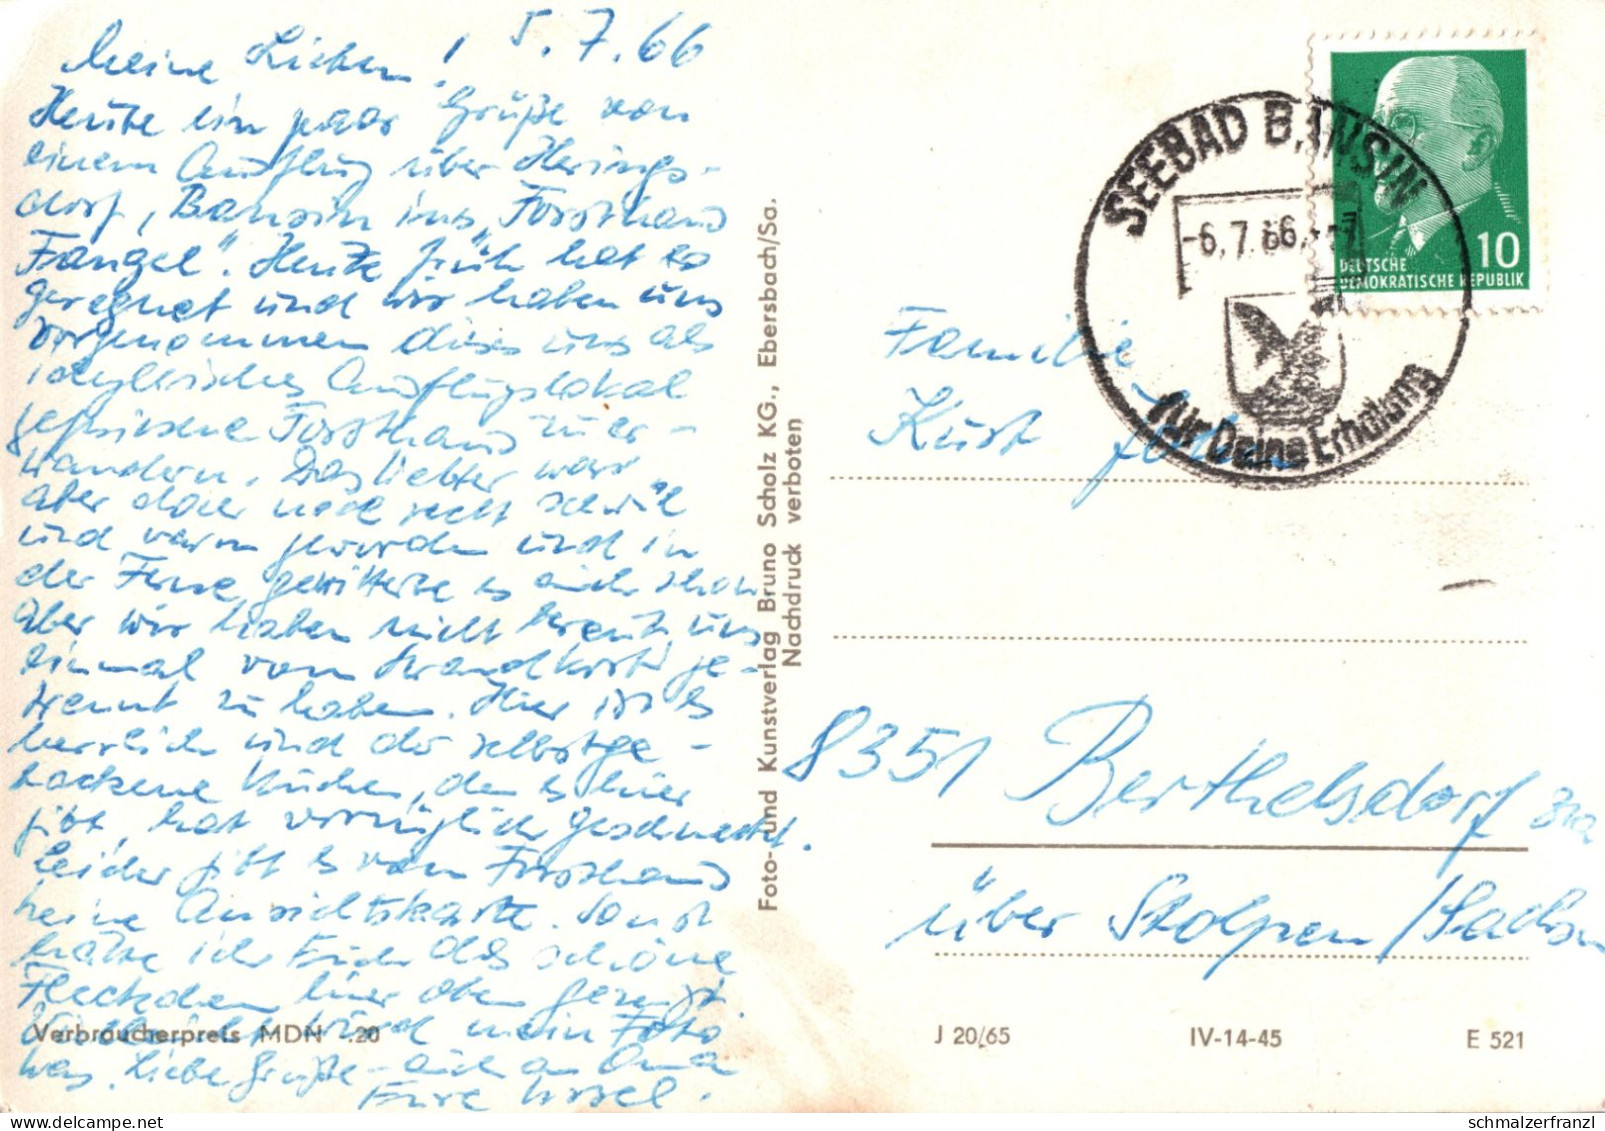 Meine Lieben! 5.7.66
Heute ein paar Grüße von
einem Ausflug über Herings-
dorf, Bansin ins „Forsthaus
Fangel". Heute früh hat es
geregnet und wir haben uns
vorgenommen dieses uns als
idyllisches Ausflugslokal
gepriesene Forsthaus zu er-
wandern. Das
aber dann noch recht schwül
und warm geworden und in
der Ferne gewitterte es auch schon
aber wir haben nicht bereut, uns
einmal vom Strandkorb ge-
trennt zu haben. Hier ist es
herrlich und der selbstge-
backene Kuchen, den es hier
gibt, hat vorzüglich geschmeckt.
Leider gibt es vom Forsthaus
keine Ansichtskarte. Sonst
hätte ich Euch das schöne
Fleckchen hier oben gezeigt
Vielleicht wird mein Foto
was. Liebe Grüße – auch an Oma
Eure Ursel.
Verbraucherpreis MDN -.20
Foto- und Kunstverlag Bruno Scholz KG., Ebersbach/Sa.
Nachdruck verboten
SEEBAD BANSIN
-6.7.66.-17
Für Deine Erholung
10
DEUTSCHE
DEMOKRATISCHE REPUBLIK
Familie
Kurt
8351 Berthelsdorf
über Stolpen/Sachsen
J 20/65 IV-14-45 E 521
schmalzerfranzl